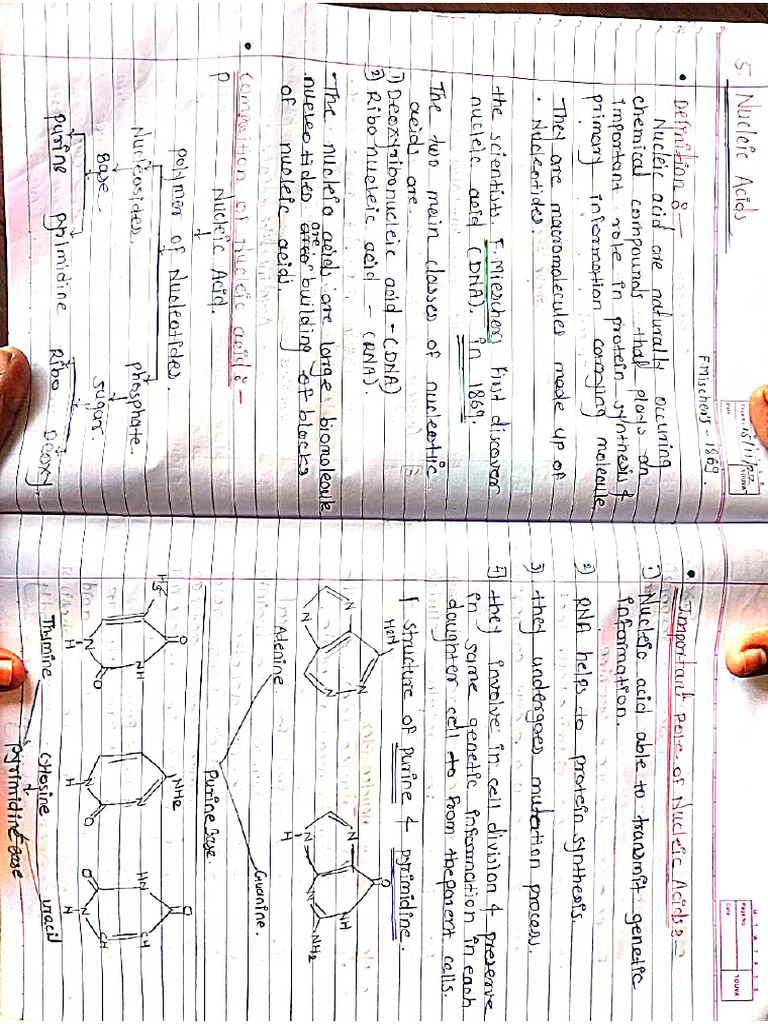 5. Nucleic Acids
F.Mischer's - 1869.
15/11/22
YOUVA
• Definition :-
Nucleic acid are naturally occuring
chemical compounds that plays an
important role in protein synthesis &
primary information carrying molecule
They are macromolecules made up of
• Nucleotides.
the scientists F. Miescher, First discover
nucleic acid (DNA), in 1869.
The two main classes of nucleotic
acids are.
1) Deoxyribonucleic acid - (DNA)
2) Ribo-nucleic acid - (RNA).
• The nucleic acids are large biomolecule
nucleotides are building of blocks
of nucleic acids.
• Composition of nucleic acid :-
P Nucleic Acid.
polymer of Nucleotides.
Nucleosides. phosphate.
Base. sugar.
purine pyrimidine Ribo Deoxy.
YOUVA
• Important Role of Nucleic Acids :-
1) Nucleic acid able to transmit genetic
information.
2) RNA helps to protein synthesis.
3) they undergoes mutertion process.
4) they involve in cell division & preserve
in same genetic information in each
daughter cell to from the parent cells.
structure of purine & pyrimidine.
H2N N N N N
O N NH N N NH2 H
Adenine Guanine.
Purine Base.
H3C O NH N O H
NH2 N N O H
O HN CH O N CH H
Thymine cytosine uracil
pyrimidine Base